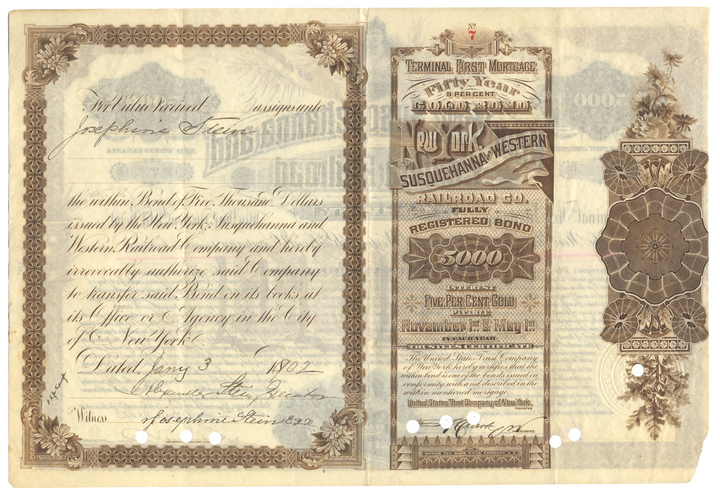 For Value Received assigns unto
Josephine Stein
the within Bond of Five Thousand Dollars
issued by the New York, Susquehanna and
Western Railroad Company and hereby
irrevocably authorize said Company
to transfer said Bond on its books at
its Office or Agency in the City
of New York.
Dated, Jany 3 1902
Alexander Stein
Witness
Josephine Stein
No
7
Terminal First Mortgage
Fifty Year
5 Per Cent
Gold Bond
New York,
Susquehanna and Western
Railroad Co.
Fully
Registered Bond
5000
Interest
Five Per Cent Gold
Payable
November 1st and May 1st
in each year
Trustee's Certificate
The United States Trust Company
of New York hereby certifies that the
within bond is one of the bonds issued in
conformity with and described in the
within mentioned mortgage.
United States Trust Company of New York.
Trustee